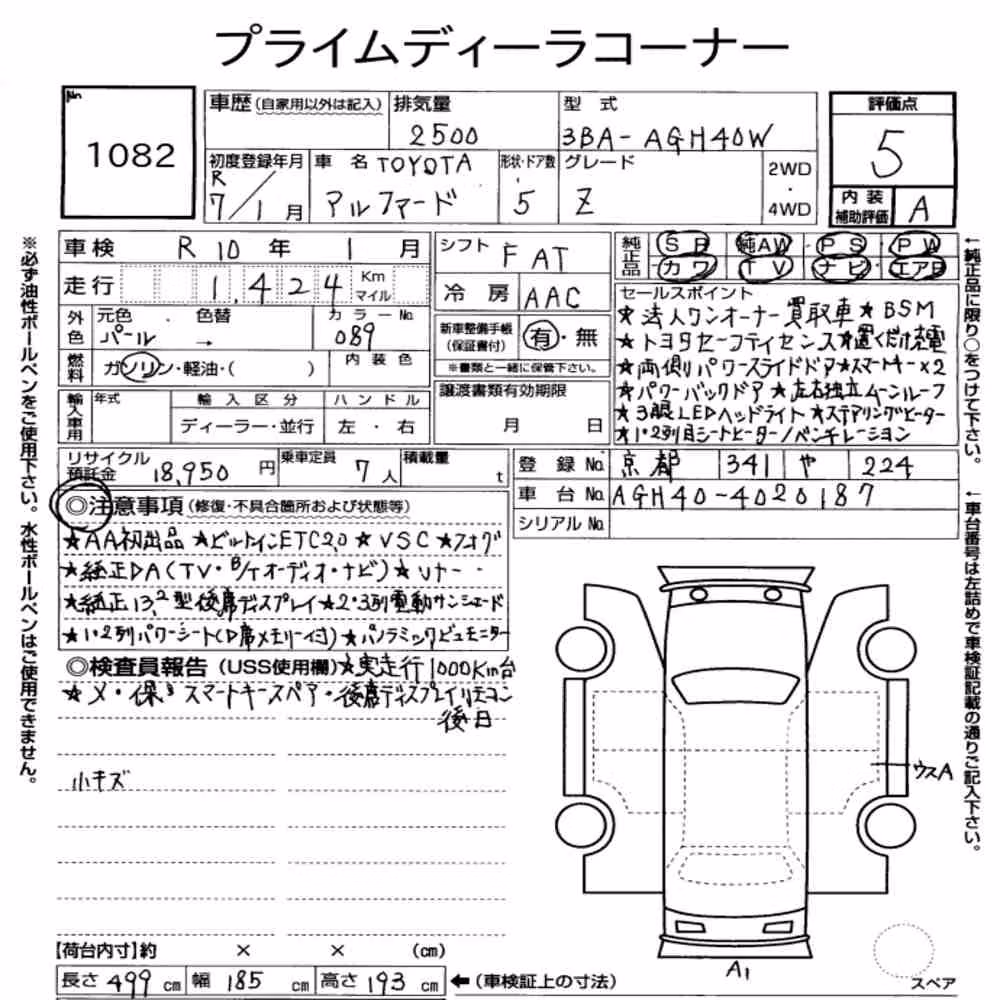 プライムディーラコーナー
No.
1082
車歴(自家用以外は記入)
排気量
2500
型式
3BA-AGH40W
評価点
5
初度登録年月
R
7/1月
車名 TOYOTA
アルファード
形状・ドア数
5
グレード
Z
2WD
・
4WD
内装
補助評価
A
車検 R10年 1月
シフト FAT
純正品
SR 純AW PS PW
カワ TV ナビ エアB
走行 1,424 Km マイル
冷房 AAC
外色 元色 パール → 色替
カラーNo. 089
新車整備手帳
(保証書付)
有・無
※書類と一緒に保管下さい。
燃料 ガソリン・軽油・( )
内装色
セールスポイント
★法人ワンオーナー買取車★BSM
★トヨタセーフティセンス★置くだけ充電
★両側パワースライドドア★スマートキー×2
★パワーバックドア★左右独立ムーンルーフ
★3眼LEDヘッドライト★ステアリングヒーター
★1・2列目シートヒーター/ベンチレーション
輸入車用 年式 輸入区分 ハンドル
ディーラー・並行 左・右
譲渡書類有効期限
月 日
リサイクル
預託金 18,950円
乗車定員 7人
積載量 t
登録No. 京都 341 や 224
車台No. AGH40-4020187
シリアルNo.
◎注意事項(修復・不具合箇所および状態等)
★AA初出品 ★ビルトインETC2.0 ★VSC★フォグ
★純正DA(TV・B/Tオーディオ・ナビ)★Uナー
★純正13.2型後席ディスプレイ★2・3列電動サンシェード
★1・2列パワーシート(D席メモリー付)★パノラミックビュモニター
◎検査員報告(USS使用欄)★実走行1000Km台
★メ・保・スマートキースペア・後席ディスプレイリモコン
後日
小キズ
ウスA
A1
スペア
【荷台内寸】約 × × (cm)
長さ 499 cm 幅 185 cm 高さ 193 cm ←(車検証上の寸法)
※必ず油性ボールペンをご使用下さい。水性ボールペンはご使用できません。
←純正品に限り○をつけて下さい。
←車台番号は左詰めで車検証記載の通りご記入下さい。